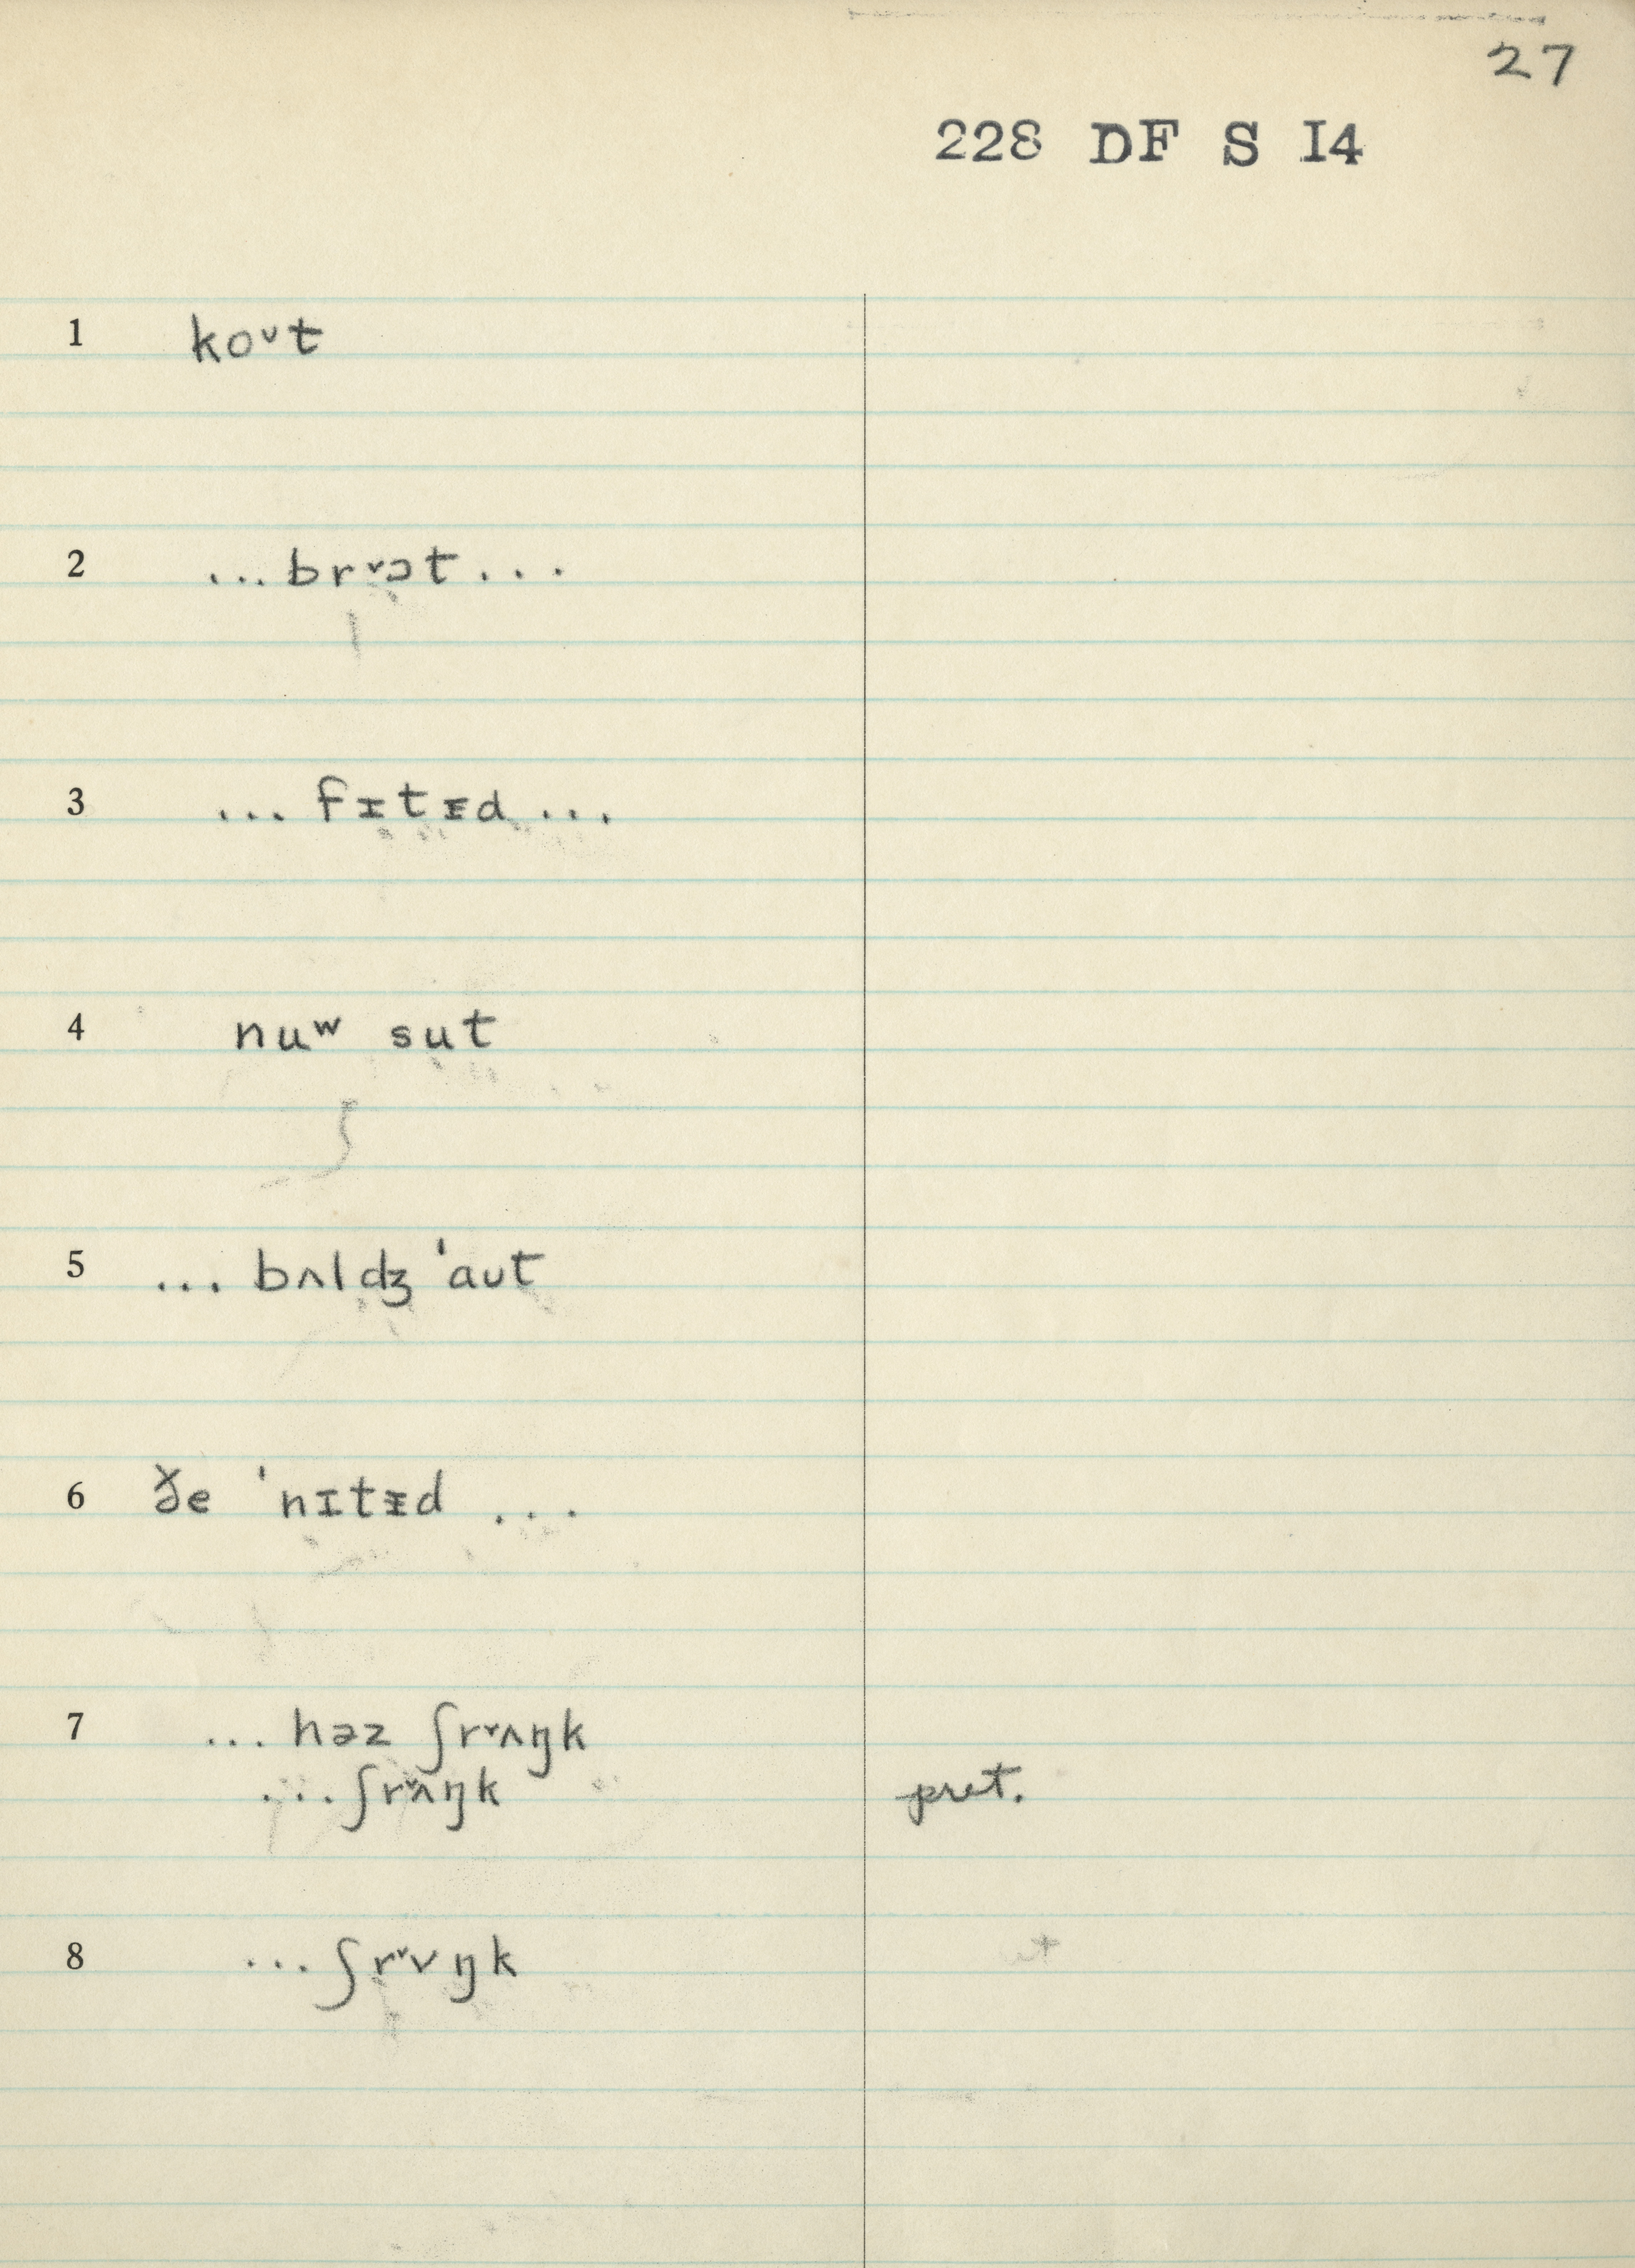 27
228 DF S I4
1 koᴜt
2 ...brᵛɔt...
3 ... fɪtᵻd ...
4 nuʷ sut
5 ... bʌldʒ ˈaʊt
6 ðe ˈnɪtᵻd ...
7 ... həz ʃrᵛʌŋk
...ʃrᵛʌŋk pret.
8 ...ʃrᵛvŋk